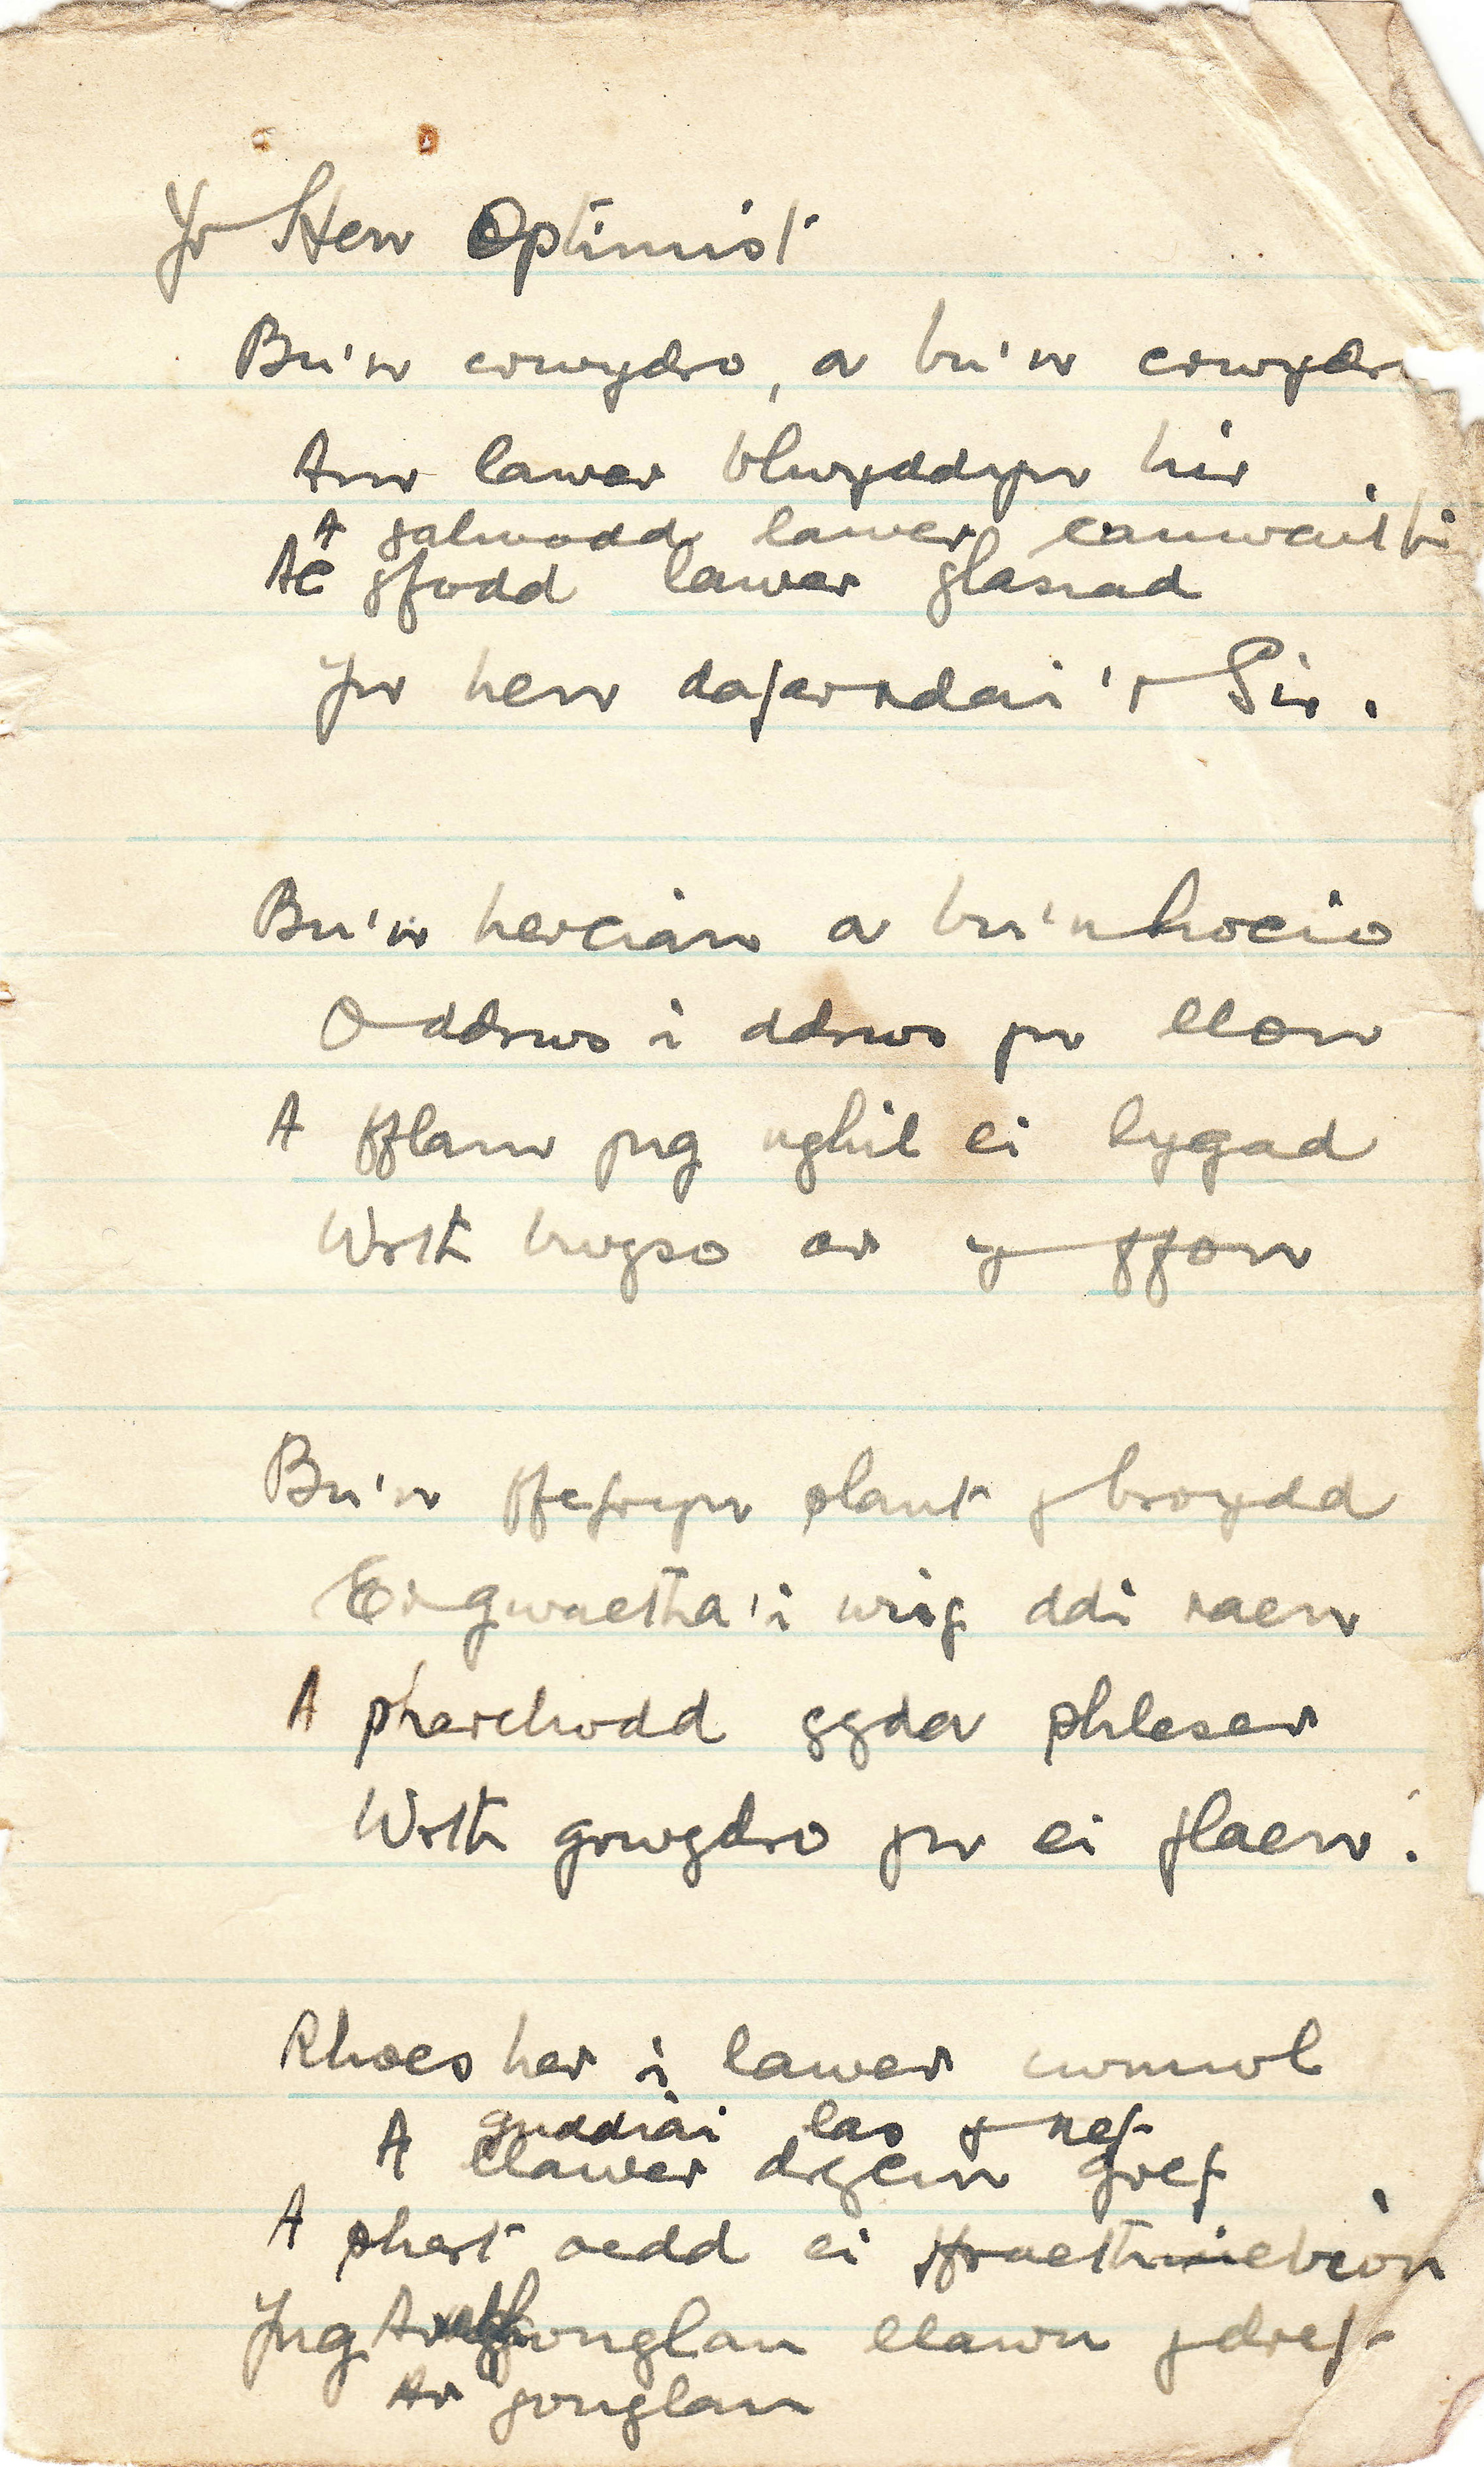 Yr Hen Optimist
Bu'n crwydro, a bu'n crwydr
Am lawer blwyddyn hir.
A galwodd lawer
Ac yfodd lawer glasiad
Yn hen dafarndai'r Sir.
Bu'n hercian a bu'n hocio
O ddrws i ddrws yn llon
A fflam yng nghil ei lygad
Wrth bwyso ar y ffon
Bu'n ffefryn plant y broydd
Er gwaetha'i wisg ddi raen
A pharchodd gyda phleser
Wrth grwydro yn ei flaen.
Rhoes her i lawer cwmwl
A guddiai las y nef
A llawer drycin gref
A phert oedd ei ffraethinebion
Yng gonglau llawn y dref
Ar gonglau